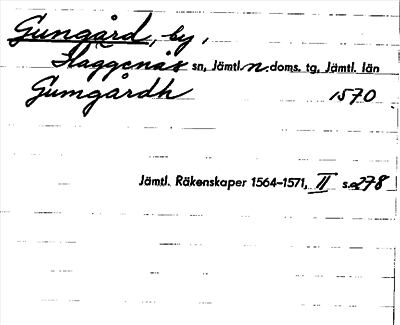 Gungård, by,
Häggenås sn, Jämtl. n. doms. tg, Jämtl. län
Gumgårdh 1570
Jämtl. Räkenskaper 1564–1571, II s. 278